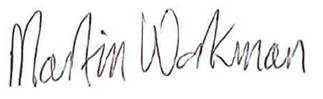 Martin Workman